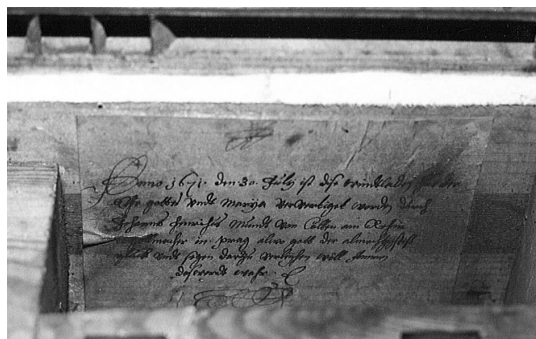 Anno 1671. den 30. July ist dise windtladen zu der
Ehr gottes undt Maria verfertiget worden durch
Johannes Henricus Mundt von Cöllen am Rhein
in prag aber gott der almechtigste
glick undt segen darzu verleihen woll Amen